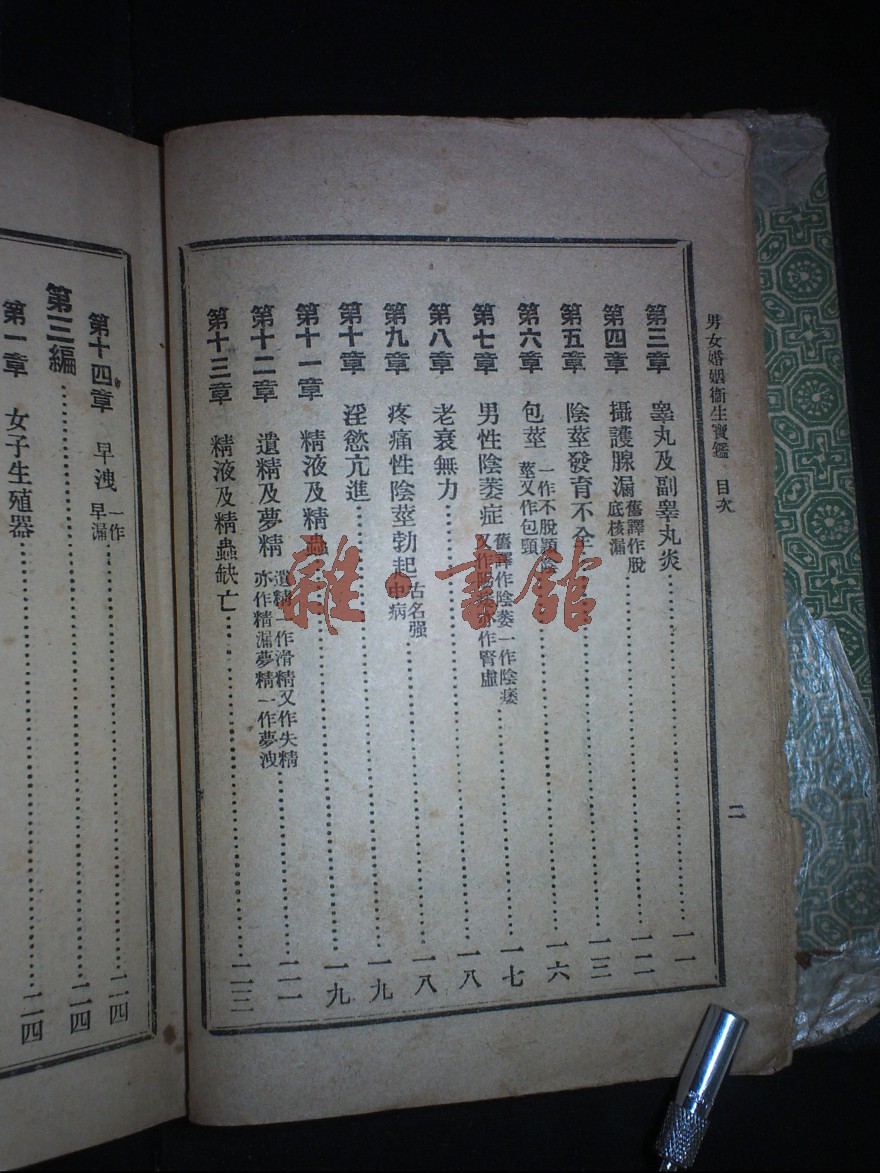 男女婚姻衞生寶鑑 目次
二
第三章 睾丸及副睾丸炎 一一
第四章 攝護腺漏 舊譯作脫底核漏 一二
第五章 陰莖發育不全 一三
第六章 包莖 一作不脫顆陰莖又作包頸 一六
第七章 男性陰萎症 舊譯作陰萎一作陰痿又作陽萎亦作腎虛 一七
第八章 老衰無力 一八
第九章 疼痛性陰莖勃起 古名强中病 一八
第十章 淫慾亢進 一九
第十一章 精液及精蟲 一九
第十二章 遺精及夢精 遺精一作滑精又作失精亦作精漏夢精一作夢洩 二一
第十三章 精液及精蟲缺亡 二三
第十四章 早洩 一作早漏 二四
第三編 二四
第一章 女子生殖器 二四
雜·書館